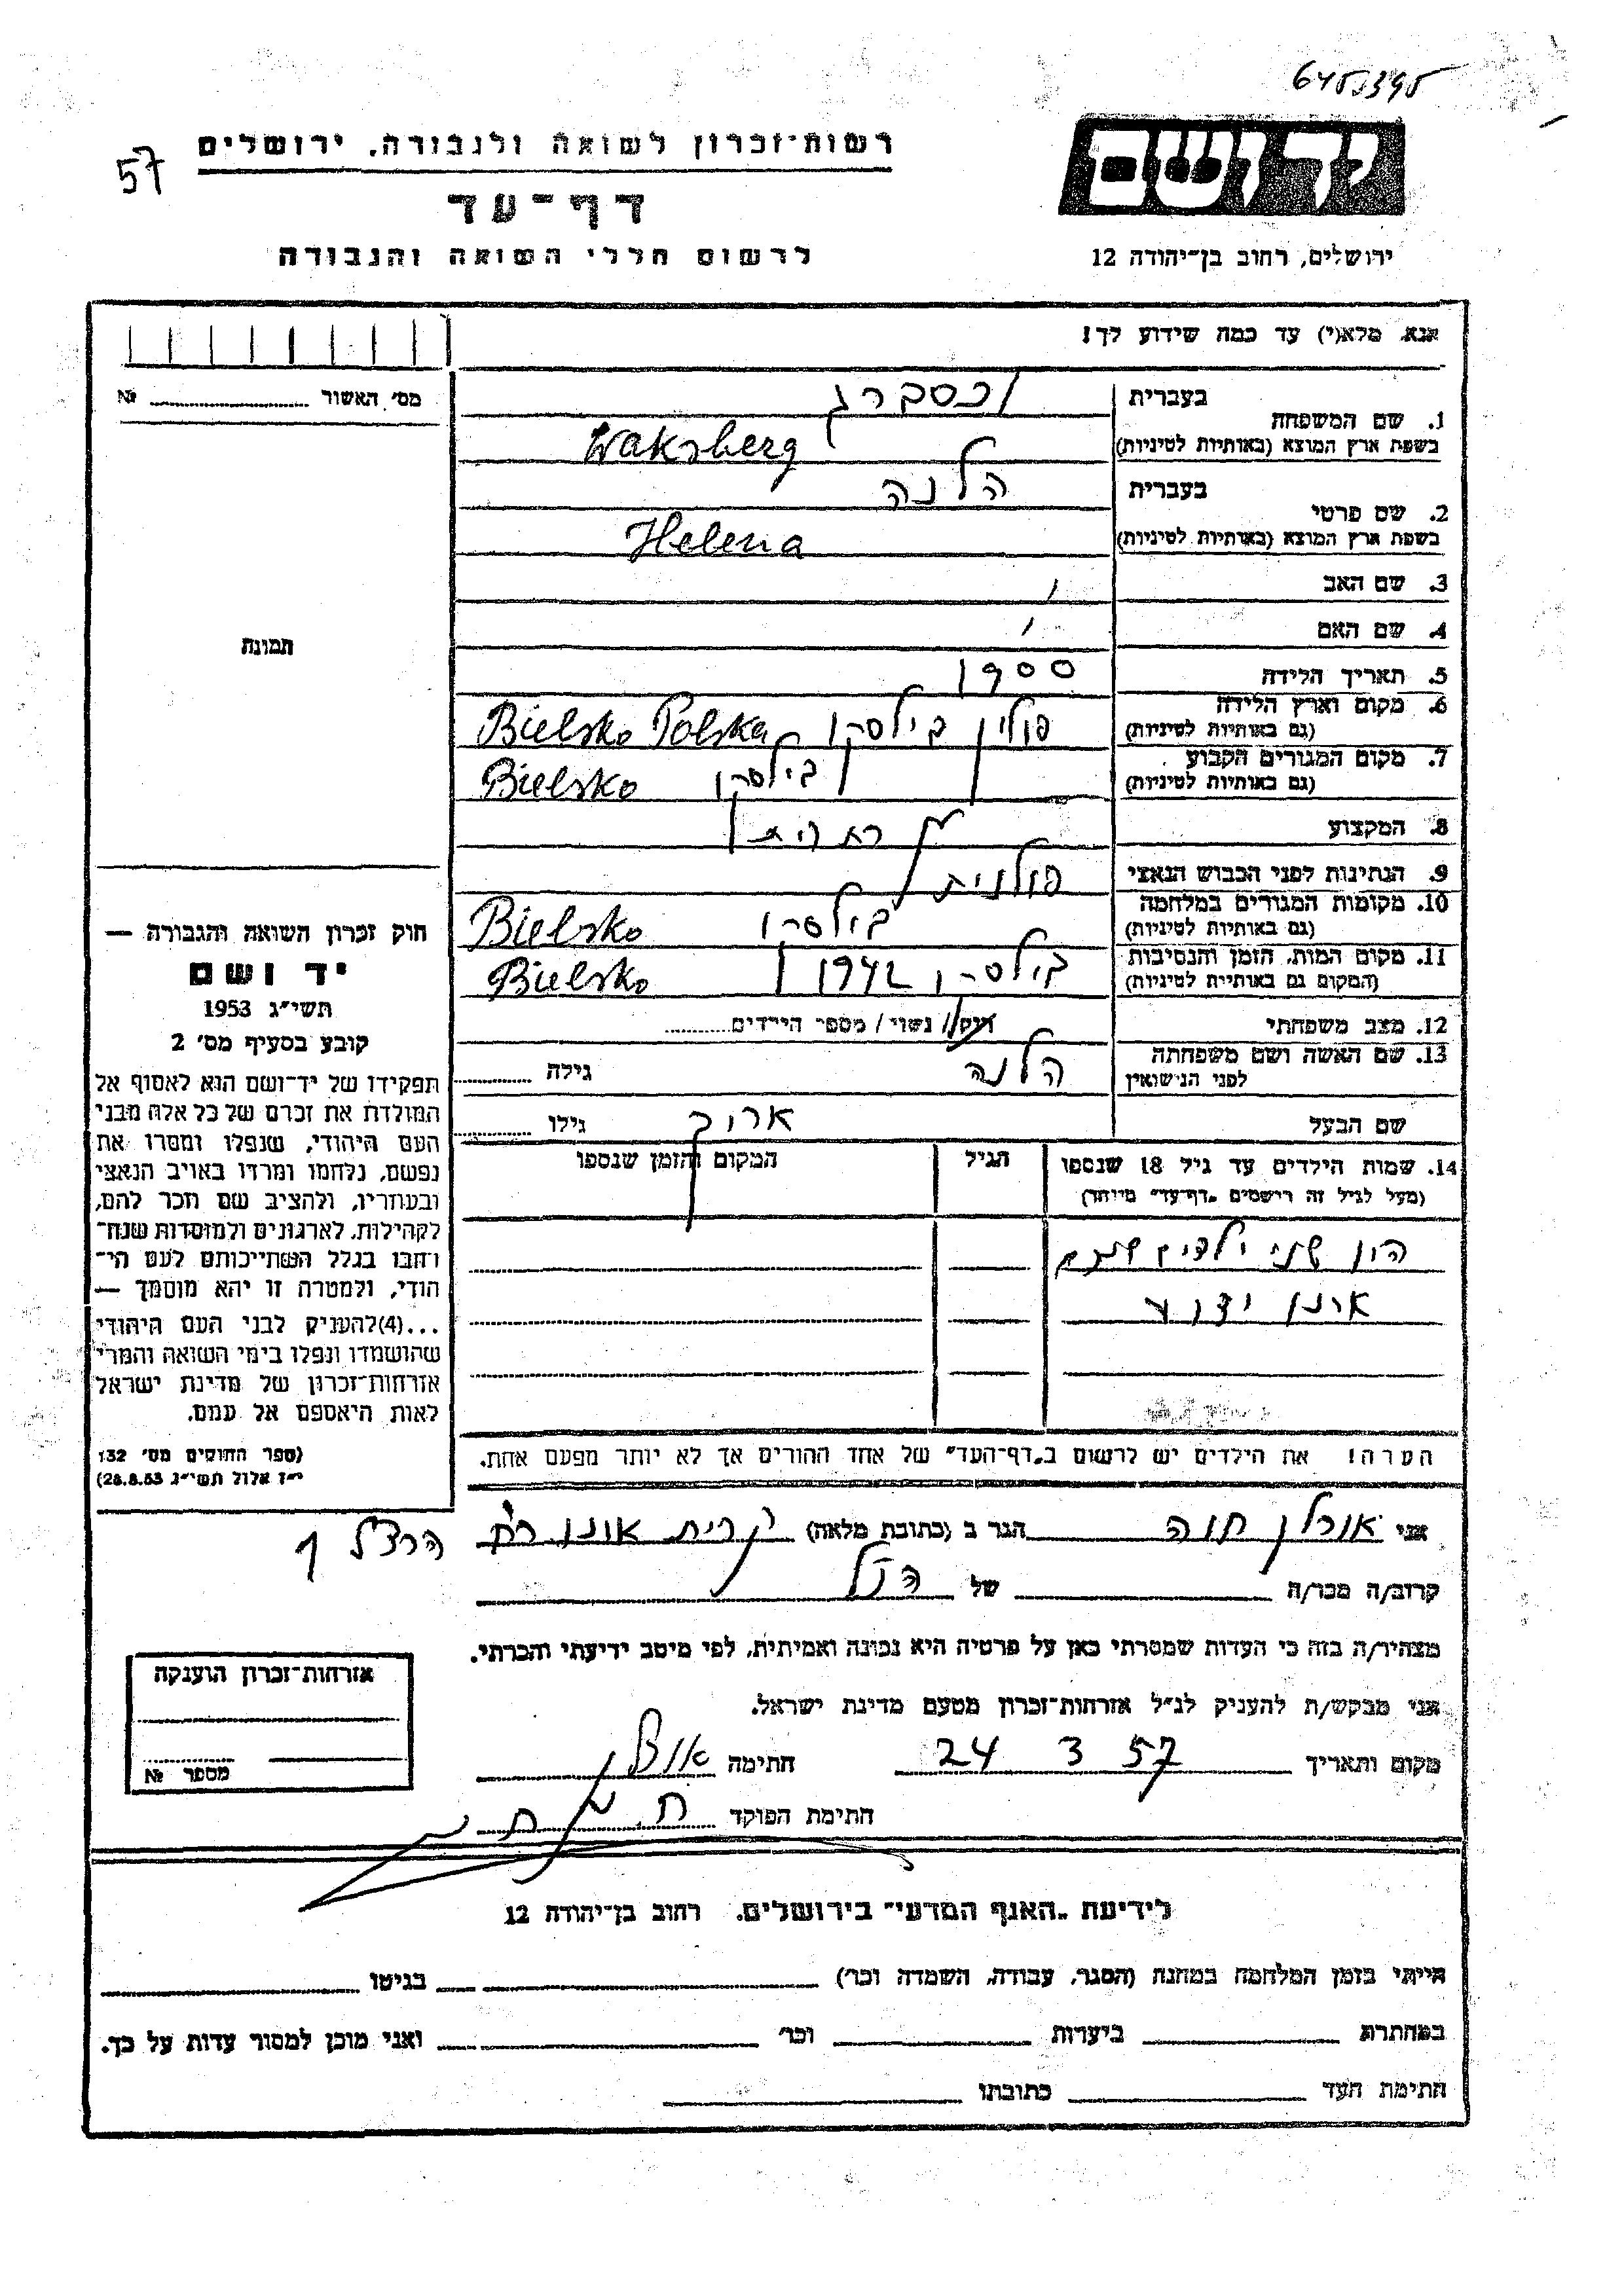 6451395
57
רשות־זכרון לשואה ולגבורה, ירושלים
דף־עד
לרשום חללי השואה והגבורה
יד ושם
ירושלים, רחוב בן־יהודה 12
אנא מלא(י) עד כמה שידוע לך!
מס׳ האשור № 
בעברית
וכסברג
1. שם המשפחה
בשפת ארץ המוצא (באותיות לטיניות)
Waksberg
בעברית
הלנה
2. שם פרטי
בשפת ארץ המוצא (באותיות לטיניות)
Helena
3. שם האב
4. שם האם
תמונה
5. תאריך הלידה 1900
6. מקום וארץ הלידה
(גם באותיות לטיניות)
פולין בילסקו Bielsko Polska
7. מקום המגורים הקבוע
(גם באותיות לטיניות)
בילסקו Bielsko
8. המקצוע
9. הנתינות לפני הכבוש הנאצי פולנית
10. מקומות המגורים במלחמה
(גם באותיות לטיניות)
בילסקו Bielsko
11. מקום המות, הזמן והנסיבות
(המקום גם באותיות לטיניות)
בילסקו 1942 Bielsko
12. מצב משפחתי רוק/ נשוי/ מספר הילדים
13. שם האשה ושם משפחתה
לפני הנישואין
הלנה גילה
שם הבעל גילו
14. שמות הילדים עד גיל 18 שנספו
(מעל לגיל זה רישמים „דף־עד״ מיוחד)
הגיל
המקום והזמן שנספו
היו שני ילדים שמם
אינו ידוע
הערה! את הילדים יש לרשום ב„דף־העד״ של אחד ההורים אך לא יותר מפעם אחת.
חוק זכרון השואה והגבורה —
יד ושם
תשי״ג 1953
קובע בסעיף מס׳ 2
תפקידו של יד־ושם הוא לאסוף אל
המולדת את זכרם של כל אלה מבני
העם היהודי, שנפלו ומסרו את
נפשם, נלחמו ומרדו באויב הנאצי
ובעוזריו, ולהציב שם וזכר להם,
לקהילות, לארגונים ולמוסדות שנח־
רבו בגלל השתייכותם לעם הי־
הודי, ולמטרה זו יהא מוסמך —
...(4)להעניק לבני העם היהודי
שהושמדו ונפלו בימי השואה והמרי
אזרחות־זכרון של מדינת ישראל
לאות היאספם אל עמם.
(ספר החוקים מס׳ 132
י״ז אלול תשי״ג 28.8.53)
אני חנה הגר ב (כתובת מלאה) קרית אונו רח׳ הרצל 1
קרוב/ה מכר/ה של הנ״ל
מצהיר/ה בזה כי העדות שמסרתי כאן על פרטיה היא נכונה ואמיתית, לפי מיטב ידיעתי והכרתי.
אני מבקש/ת להעניק לנ״ל אזרחות־זכרון מטעם מדינת ישראל.
מקום ותאריך 24 3 57 חתימה
חתימת הפוקד
אזרחות־זכרון הוענקה
מספר №
לידיעת „האגף המדעי״ בירושלים, רחוב בן־יהודה 12
הייתי בזמן המלחמה במחנה (הסגר, עבודה, השמדה וכר׳) בגיטו
במחתרת ביערות וכר׳ ואני מוכן למסור עדות על כך.
חתימת העד כתובתו